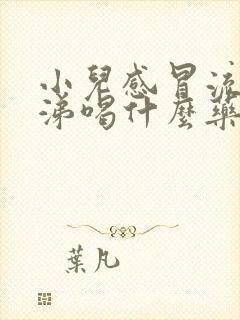 小兒感冒流
涕喝什麼藥
葉凡